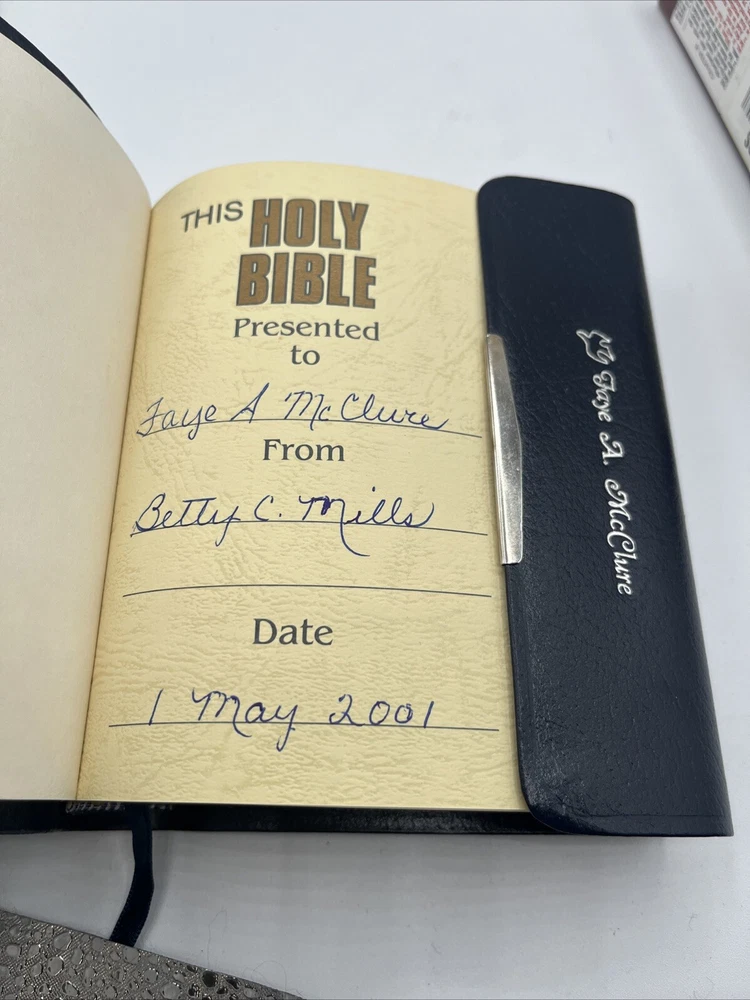 THIS HOLY
BIBLE
Presented
to
Faye A McClure
From
Betty C. Mills
Date
1 May 2001
Faye A. McClure